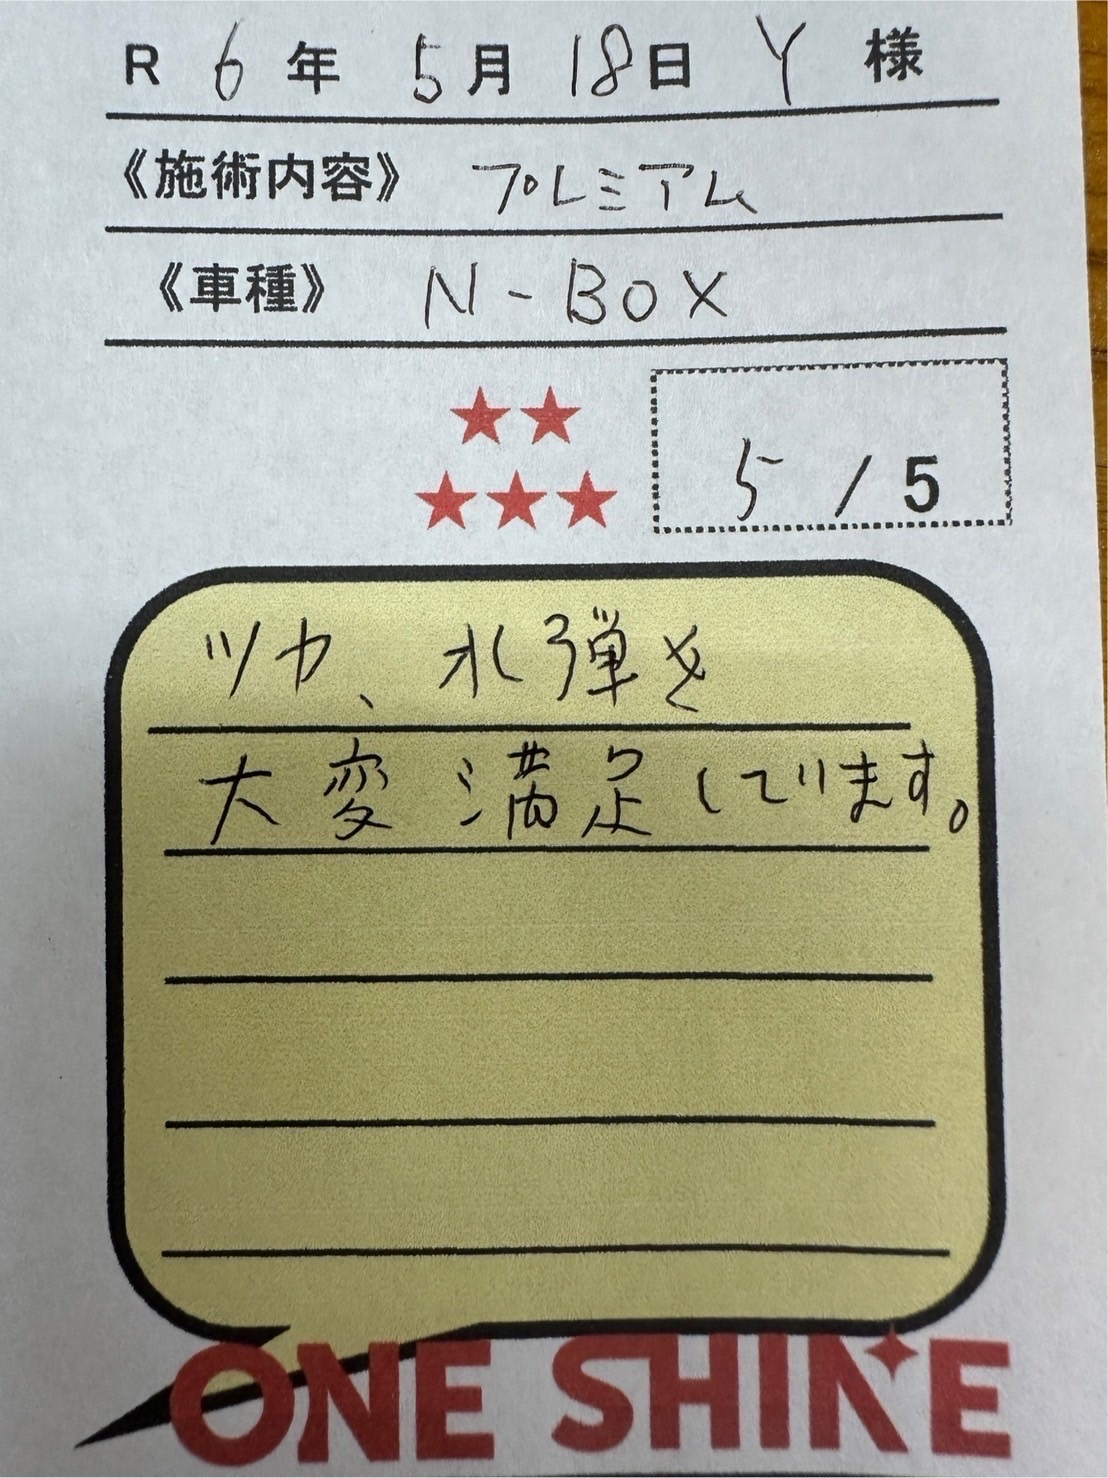 R 6 年 5 月 18 日 Y 様
《施術内容》 プレミアム
《車種》 N-BOX
★★
★★★
5 / 5
ツヤ、水弾き
大変満足しています。
ONE SHINE